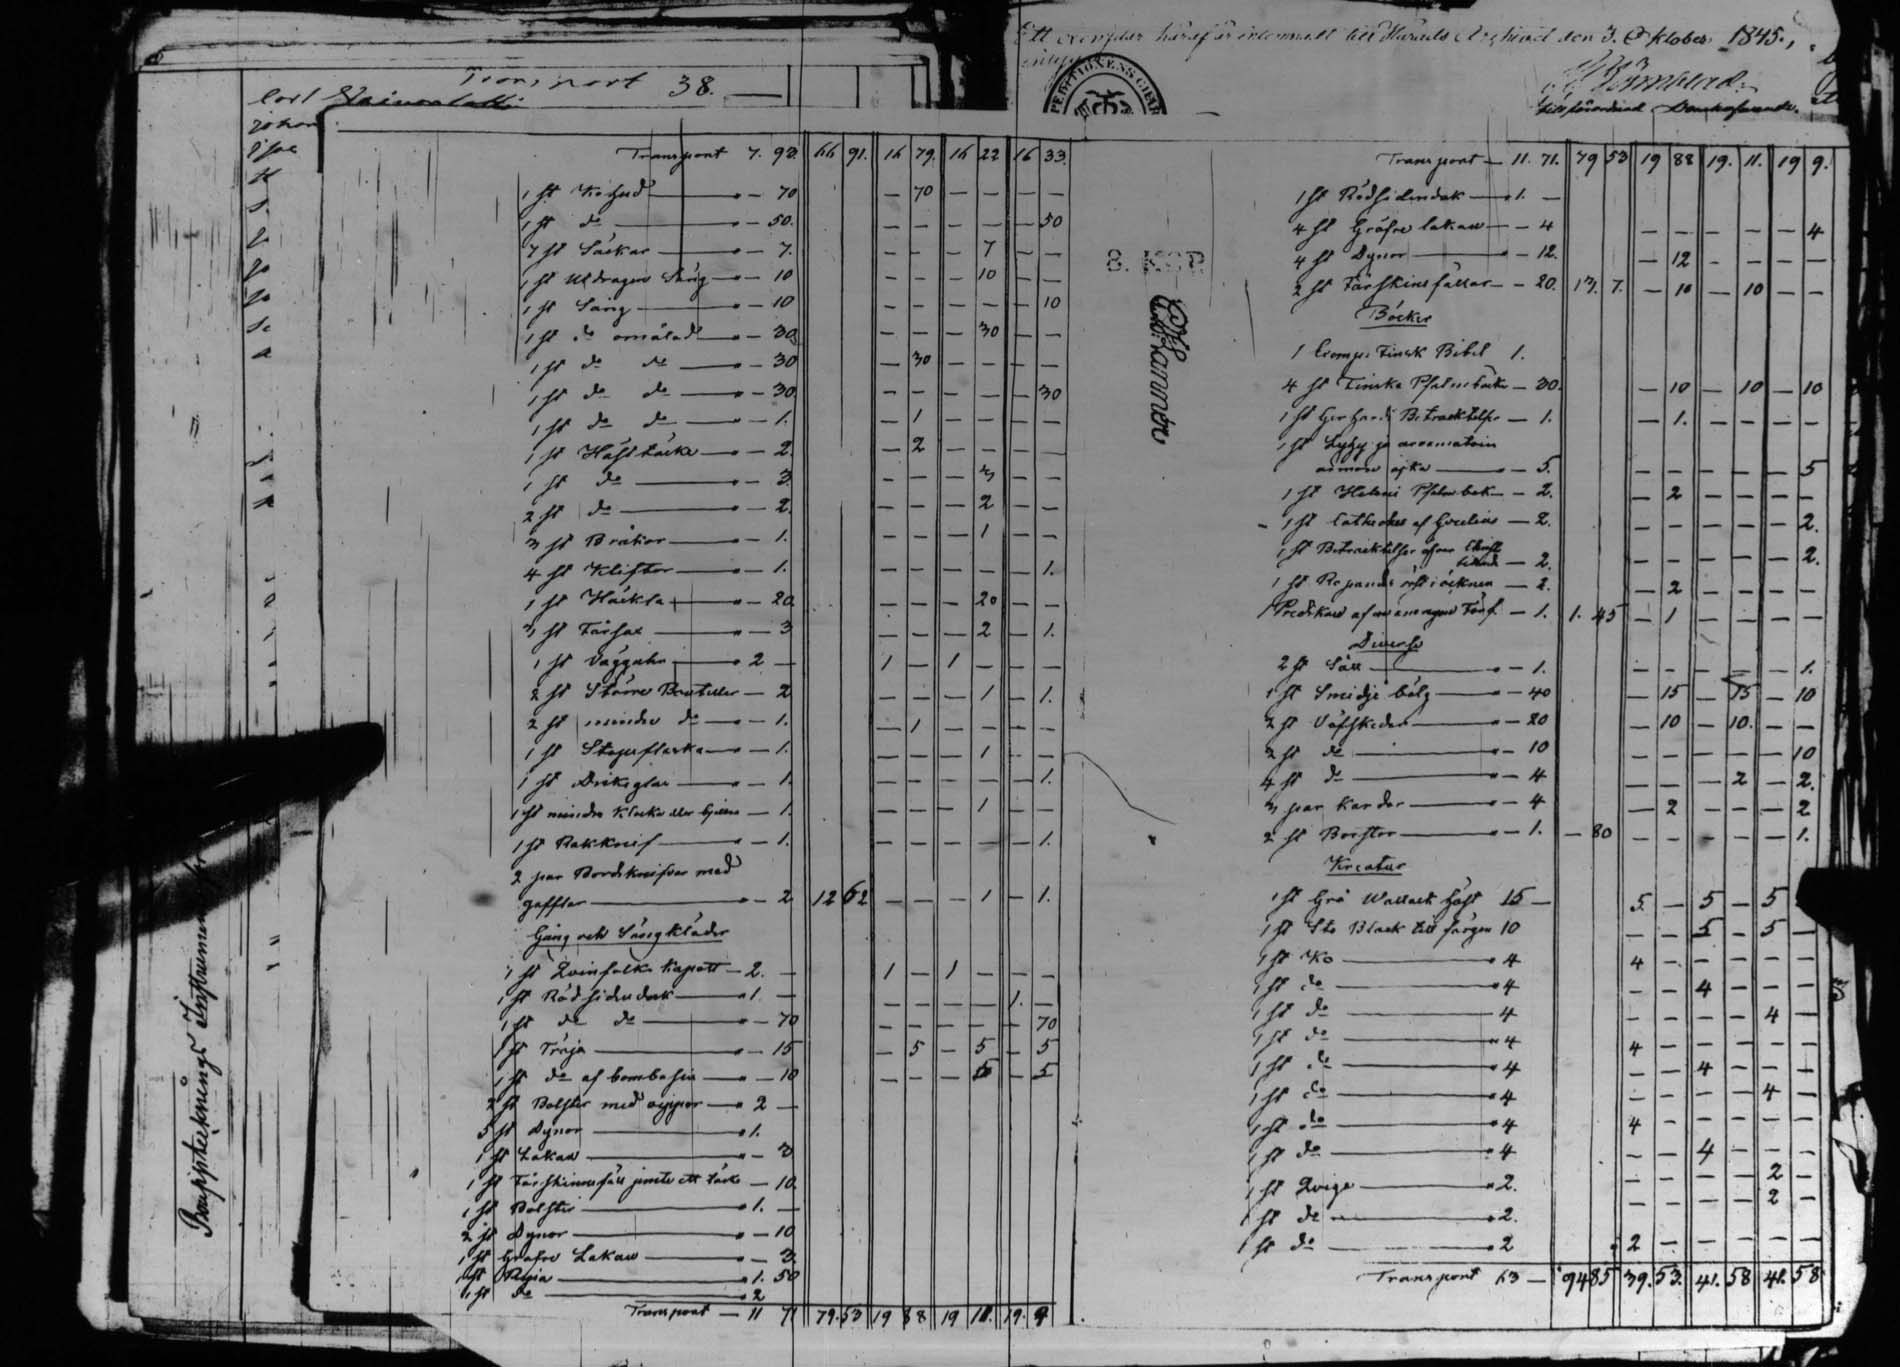 Transport 38.
Carl
Johan
Ett exemplar häraf är inlemnadt till Härads Archivet den 3. Oktober 1845.,
PEDITIONENS CHAR
8. KSP.
Transport 7. 92. 66 91. 16 79. 16 22 16 33.
1 st Kohud — 70 — 70 — — — —
1 st do — 50. — — — — — 50
7 st Säckar — 7. — — — 7 — —
1 st Utdragen Säng — 10 — — — 10 — —
1 st Säng — 10 — — — — — 10
1 st do omålad — 30 — — — 30 — —
1 st do do — 30 — 30 — — — —
1 st do do — 30 — — — — — 30
1 st do do — 1. — 1 — — — —
1 st Hästtäcke — 2. — 2 — — — —
1 st do — 3. — — — 3 — —
2 st do — 2. — — — 2 — —
3 st Bråkor — 1. — — — 1 — —
4 st Klistor — 1. — — — — — 1.
1 st Häckla — 20. — — — 20 — —
3 st Fårsax — 3 — — — 2 — 1.
1 st Vägguhr 2 — 1 — 1 — — —
2 st Större Bouteller — 2 — — — 1 — 1.
2 st mindre do — 1. — 1 — — — —
1 st flaska — 1. — — — 1 — —
1 st Dricksglas — 1. — — — — — 1.
1 st mindre Klocka eller bjellra — 1. — — — 1 — —
1 st Rakknif — 1. — — — — — 1.
2 par Bordsknifvar med
gafflar — 2 12 62 — — — 1 — 1.
Gång och Sängkläder
1 st Qvinfolks Kapott — 2. — 1 — 1 — — —
1 st Röd sidenduk 1. — — — — — 1. —
1 st do do — 70 — — — — — 70
1 st Tröja — 15 — 5 — 5 — 5
1 st do af bombasin — 10 — — — 5 — 5
2 st Bolster med 2 —
5 st Dynor 1.
1 st Lakan — 3
1 st Fårskinnsfäll jemte ett täcke — 10.
1 st Bolster 1. —
2 st Dynor — 10
1 st Grofve Lakan — 3.
1 st 1. 50
1 st do 2
Transport — 11 71 79. 53 19 88 19 11. 19. 9
Transport — 11. 71. 79 53 19 88 19. 11. 19 9.
1 st Röd sidenduk 1. —
4 st Gröfre lakan — 4 — — — — — 4
4 st Dynor — 12. — 12 — — — —
2 st Fårskinsfällar — 20. 13. 7. — 10 — 10 — —
Böcker
1 Exemp. Finsk Bibel 1.
4 st Finska Psalmböcker — 30. — 10 — 10 — 10
1 st Gerhards Betracktelser — 1. — 1. — — — —
1 st Lyhy ja
armon — 5. — — — — — 5
1 st Psalmbok — 2. — 2 — — — —
1 st af — 2. — — — — — 2.
1 st Betracktelser öfver
— 2. — — — — — 2.
1 st röst i öcknen — 2. — 2 — — — —
Predikan af — 1. 1. 45 — 1 — — — —
Diverse
2 st Såll — 1. — — — — — 1.
1 st Smidje bälg — 40 — 15 — 15 — 10
2 st Väfskedar — 20 — 10 — 10. — —
2 st do — 10 — — — — — 10
4 st do — 4 — — — 2 — 2.
3 par Kardor — 4 — 2 — — — 2
2 st Borstor — 1. — 80 — — — — — 1.
Kreatur
1 st Grå Wallack häst 15 — 5. — 5 — 5
1 st Sto Black till färgen 10 — — 5 — 5 —
1 st Ko 4 4 — — — — —
1 st do 4 — — 4 — — —
1 st do 4 — — — — 4 —
1 st do 4 4 — — — — —
1 st do 4 — — 4 — — —
1 st do 4 — — — — 4 —
1 st do 4 4 — — — — —
1 st do 4 — — 4 — — —
1 st Qviga 2. — — — — 2 —
1 st do 2. — — — — 2 —
1 st do 2 2 — — — — —
Transport 63 — 94 85 39. 53. 41. 58 41. 58